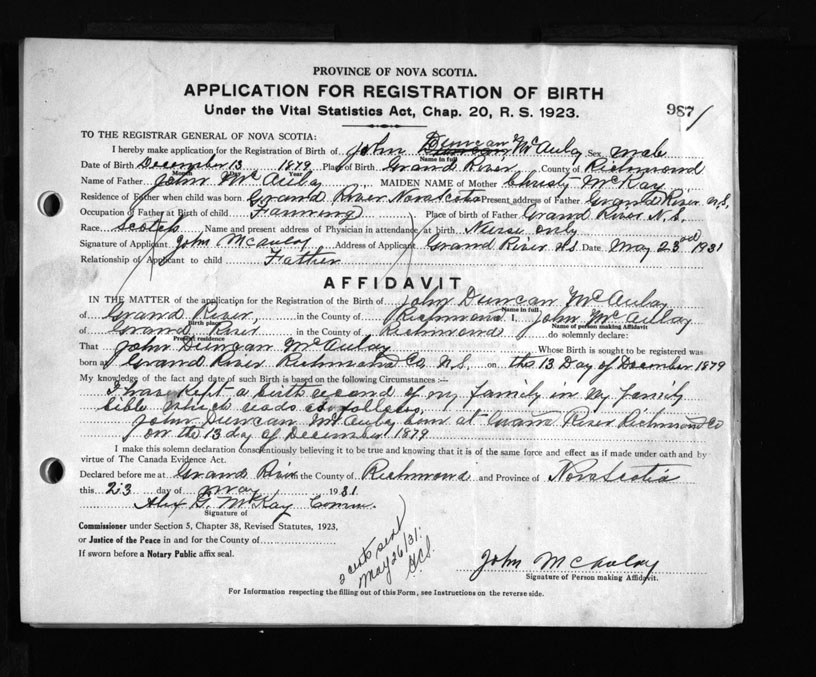 PROVINCE OF NOVA SCOTIA.
APPLICATION FOR REGISTRATION OF BIRTH
Under the Vital Statistics Act, Chap. 20, R. S. 1923.
987/
TO THE REGISTRAR GENERAL OF NOVA SCOTIA:
I hereby make application for the Registration of Birth of John Duncan McAulay Sex male
Name in full
Date of Birth December 13 1879 Place of Birth Grand River County of Richmond
Month Day Year
Name of Father John McAulay MAIDEN NAME of Mother Christy McKay
Residence of Father when child was born Grand River Nova Scotia Present address of Father Grand River N.S.
Occupation of Father at Birth of child Farming Place of birth of Father Grand River N.S.
Race Scotch Name and present address of Physician in attendance at birth Nurse only
Signature of Applicant John McAulay Address of Applicant Grand River N.S. Date May 23rd 1931
Relationship of Applicant to child Father
AFFIDAVIT
IN THE MATTER of the application for the Registration of the Birth of John Duncan McAulay
Name in full
of Grand River, in the County of Richmond I, John McAulay
Birth place Name of person making Affidavit
of Grand River in the County of Richmond do solemnly declare:
Present residence
That John Duncan McAulay Whose Birth is sought to be registered was
born at Grand River Richmond Co N.S. on the 13 Day of December 1879
My knowledge of the fact and date of such Birth is based on the following Circumstances :—
I have Kept a birth record of my family in my family
bible which reads as follows,
John Duncan McAulay born at Grand River Richmond Co
on the 13 day of December 1879
I make this solemn declaration conscientiously believing it to be true and knowing that it is of the same force and effect as if made under oath and by
virtue of The Canada Evidence Act.
Declared before me at Grand River in the County of Richmond and Province of Nova Scotia
this 23 day of May 1931
Alex G. McKay Comm.
Signature of
Commissioner under Section 5, Chapter 38, Revised Statutes, 1923,
or Justice of the Peace in and for the County of
If sworn before a Notary Public affix seal.
2 certs sent
May 26/31.
John McAulay
Signature of Person making Affidavit.
For Information respecting the filling out of this Form, see Instructions on the reverse side.